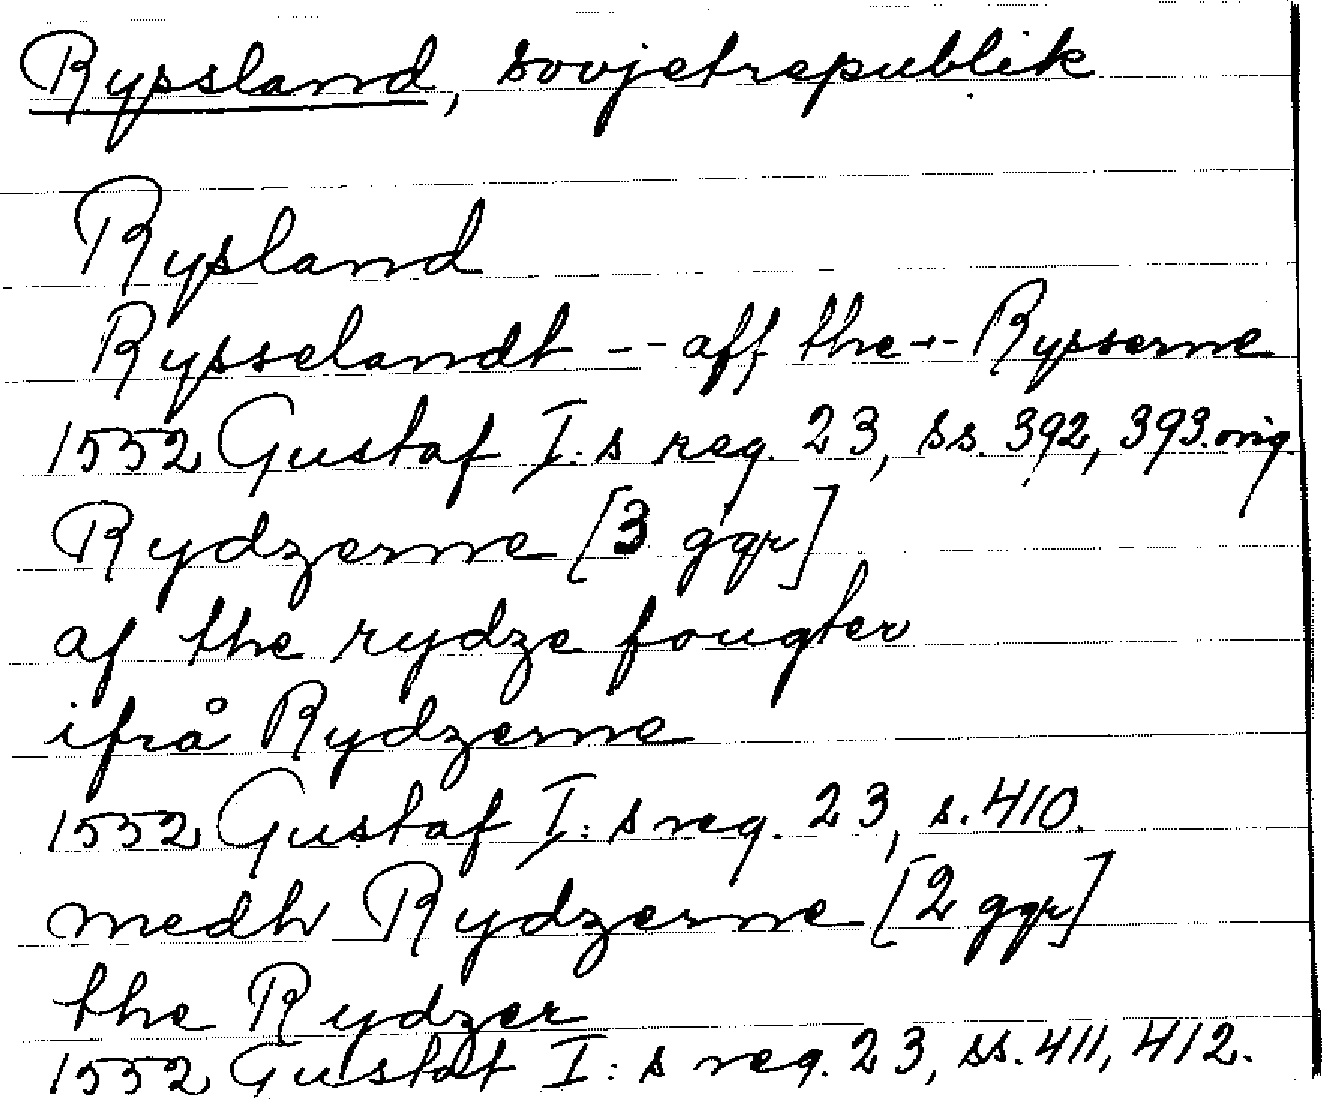 Ryssland, sovjetrepublik
Rysland
Rysselandt -- aff the -- Rysserne
1552 Gustaf I:s reg. 23, ss. 392, 393. orig.
Rydzerne [3 ggr]
af the rydze fougter
ifrå Rydzerne
1552 Gustaf I:s reg. 23, s. 410.
medh Rydzerne [2 ggr]
the Rydzer
1552 Gustaf I:s reg. 23, ss. 411, 412.